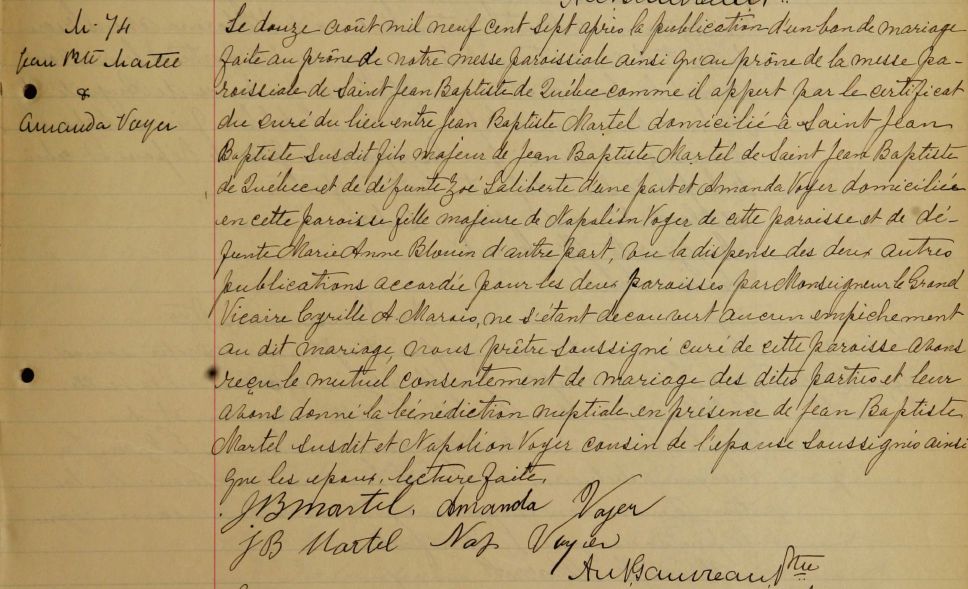 M. 74
Jean Bte Martel
&
Amanda Voyer
Le douze août mil neuf cent sept après la publication d'un ban de mariage
faite au prône de notre messe paroissiale ainsi qu'au prône de la messe pa-
roissiale de Saint Jean Baptiste de Québec comme il appert par le certificat
du curé du lieu entre Jean Baptiste Martel domicilié à Saint Jean
Baptiste susdit fils majeur de Jean Baptiste Martel de Saint Jean Baptiste
de Québec et de défunte Zoé Laliberte d'une part et Amanda Voyer domiciliée
en cette paroisse fille majeure de Napoléon Voyer de cette paroisse et de dé-
funte Marie Anne Blouin d'autre part, vu la dispense des deux autres
publications accordée pour les deux paroisses par Monseigneur le Grand
Vicaire Cyrille A Marois, ne s'étant découvert aucun empêchement
au dit mariage, nous prêtre soussigné curé de cette paroisse avons
reçu le mutuel consentement de mariage des dites parties et leur
avons donné la bénédiction nuptiale en présence de Jean Baptiste
Martel susdit et Napoléon Voyer cousin de l'epouse soussignés ainsi
que les epoux, lecture faite.
J B Martel. Amanda Voyer
J B Martel Nap Voyer
Gauvreau, Ptre